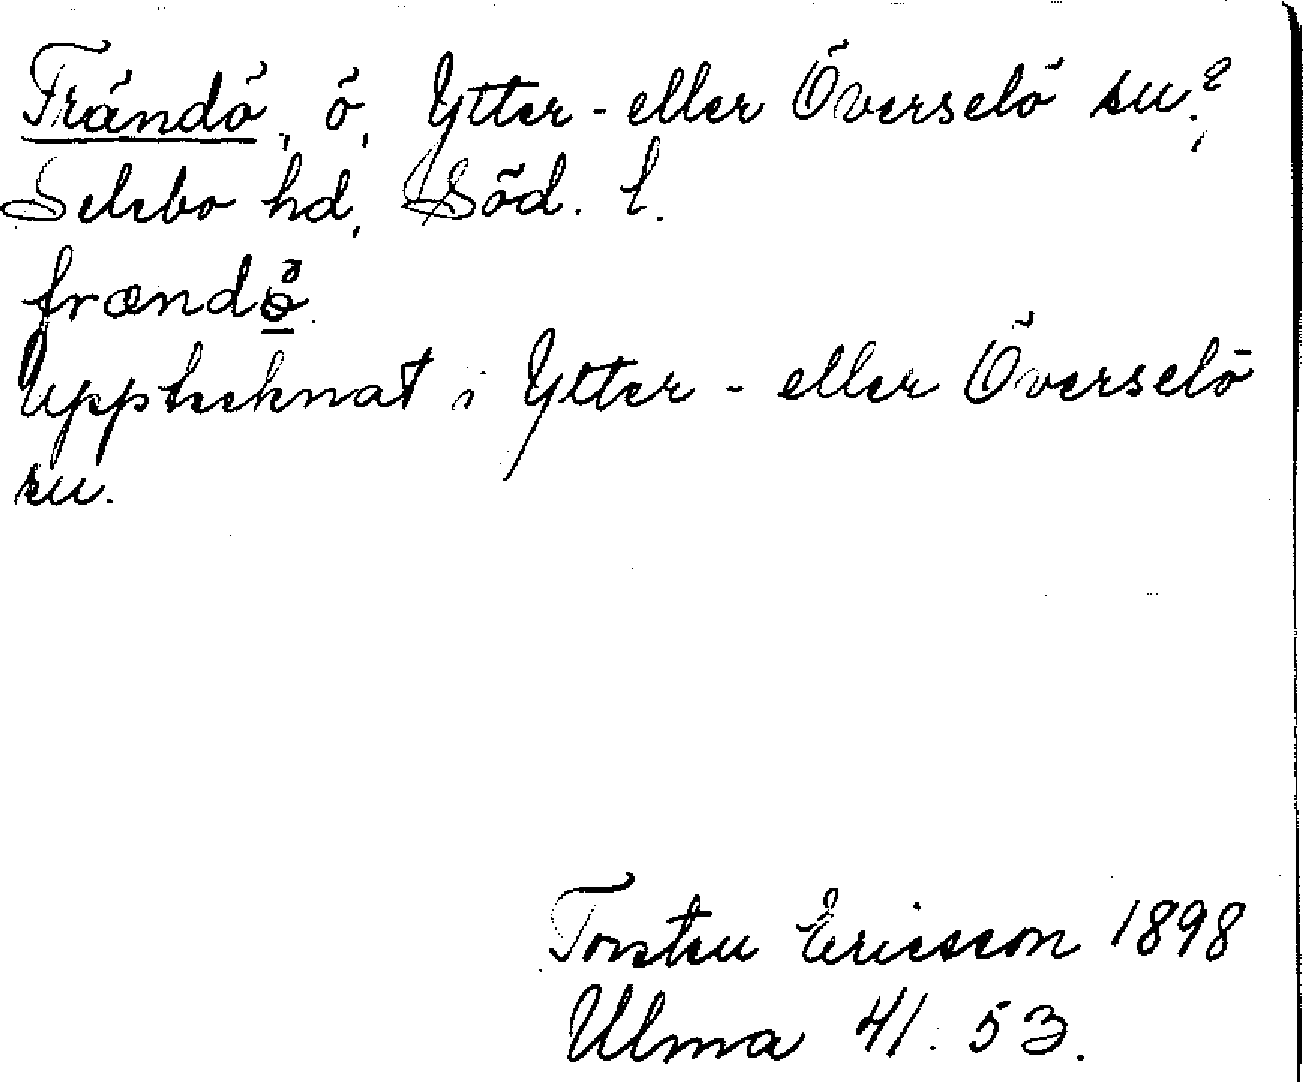 Frändö, ö, Ytter- eller Överselö sn?,
Selebo hd, Söd. l.
frændö̀.
Upptecknat i Ytter- eller Överselö
sn.
Torsten Ericsson 1898
Ulma 41. 53.